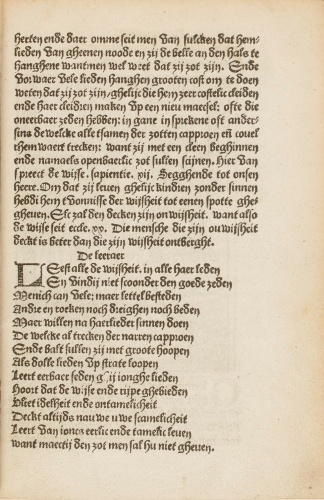 herten ende daer omme seit men van sulcken dat hem-
lieden van gheenen noode en zij de belle an den hals te
hanghene want men wel weet dat zij zot zijn. Ende
voorwaer vele lieden hanghen grooten cost om te doen
weten dat zij zot zijn, ghelijc die hem zeer costelic cleiden
ende haer cleidren maken up een nieu maecsel: ofte die
oneerbaer zeden hebben: in gane in sprekene oft ander-
sins de welcke alle tsamen der zotten capproen en couel
ouer themwaert trecken: want zij met een cleen beghinnen
ende namaels openbaerlic zot sullen scijnen. Hier van
spreect de wijse. sapientie. xij. Segghende tot onsen
heere. Om dat zij leuen ghelijc kindien zonder sinnen
hebdi hem tvonnisse der wijsheit tot eenen spotte ghe-
gheuen. Elc zal den decken zijn onwijsheit. want also
de wijse seit eccle. xx. Die mensche die zijn ouwijsheit
deckt is beter dan die zijn wijsheit ontberght.
De leeraer
Leest alle de wijsheit. in alle haer leden
En vindij niet scoonder den goede zeden
Menich can vele: maer lettel besteden
Andre en roeken noch dreighen noch beden
Maer willen na haerlieder sinnen doen
De welcke al trecken der narren capproen
Ende valt sullen zij met groote hoopen
Als dolle lieden up strate loopen
Leert eerbaer seden ghij ionghe lieden
Hoort dat de wijse ende rijpe ghebieden
Vliet idelheit ende ontamelicheit
Deckt altijds nau we u we scamelicheit
Leert van ioncx eerlic ende tamelic leuen
want maectij den zot men sal hu niet gheven.